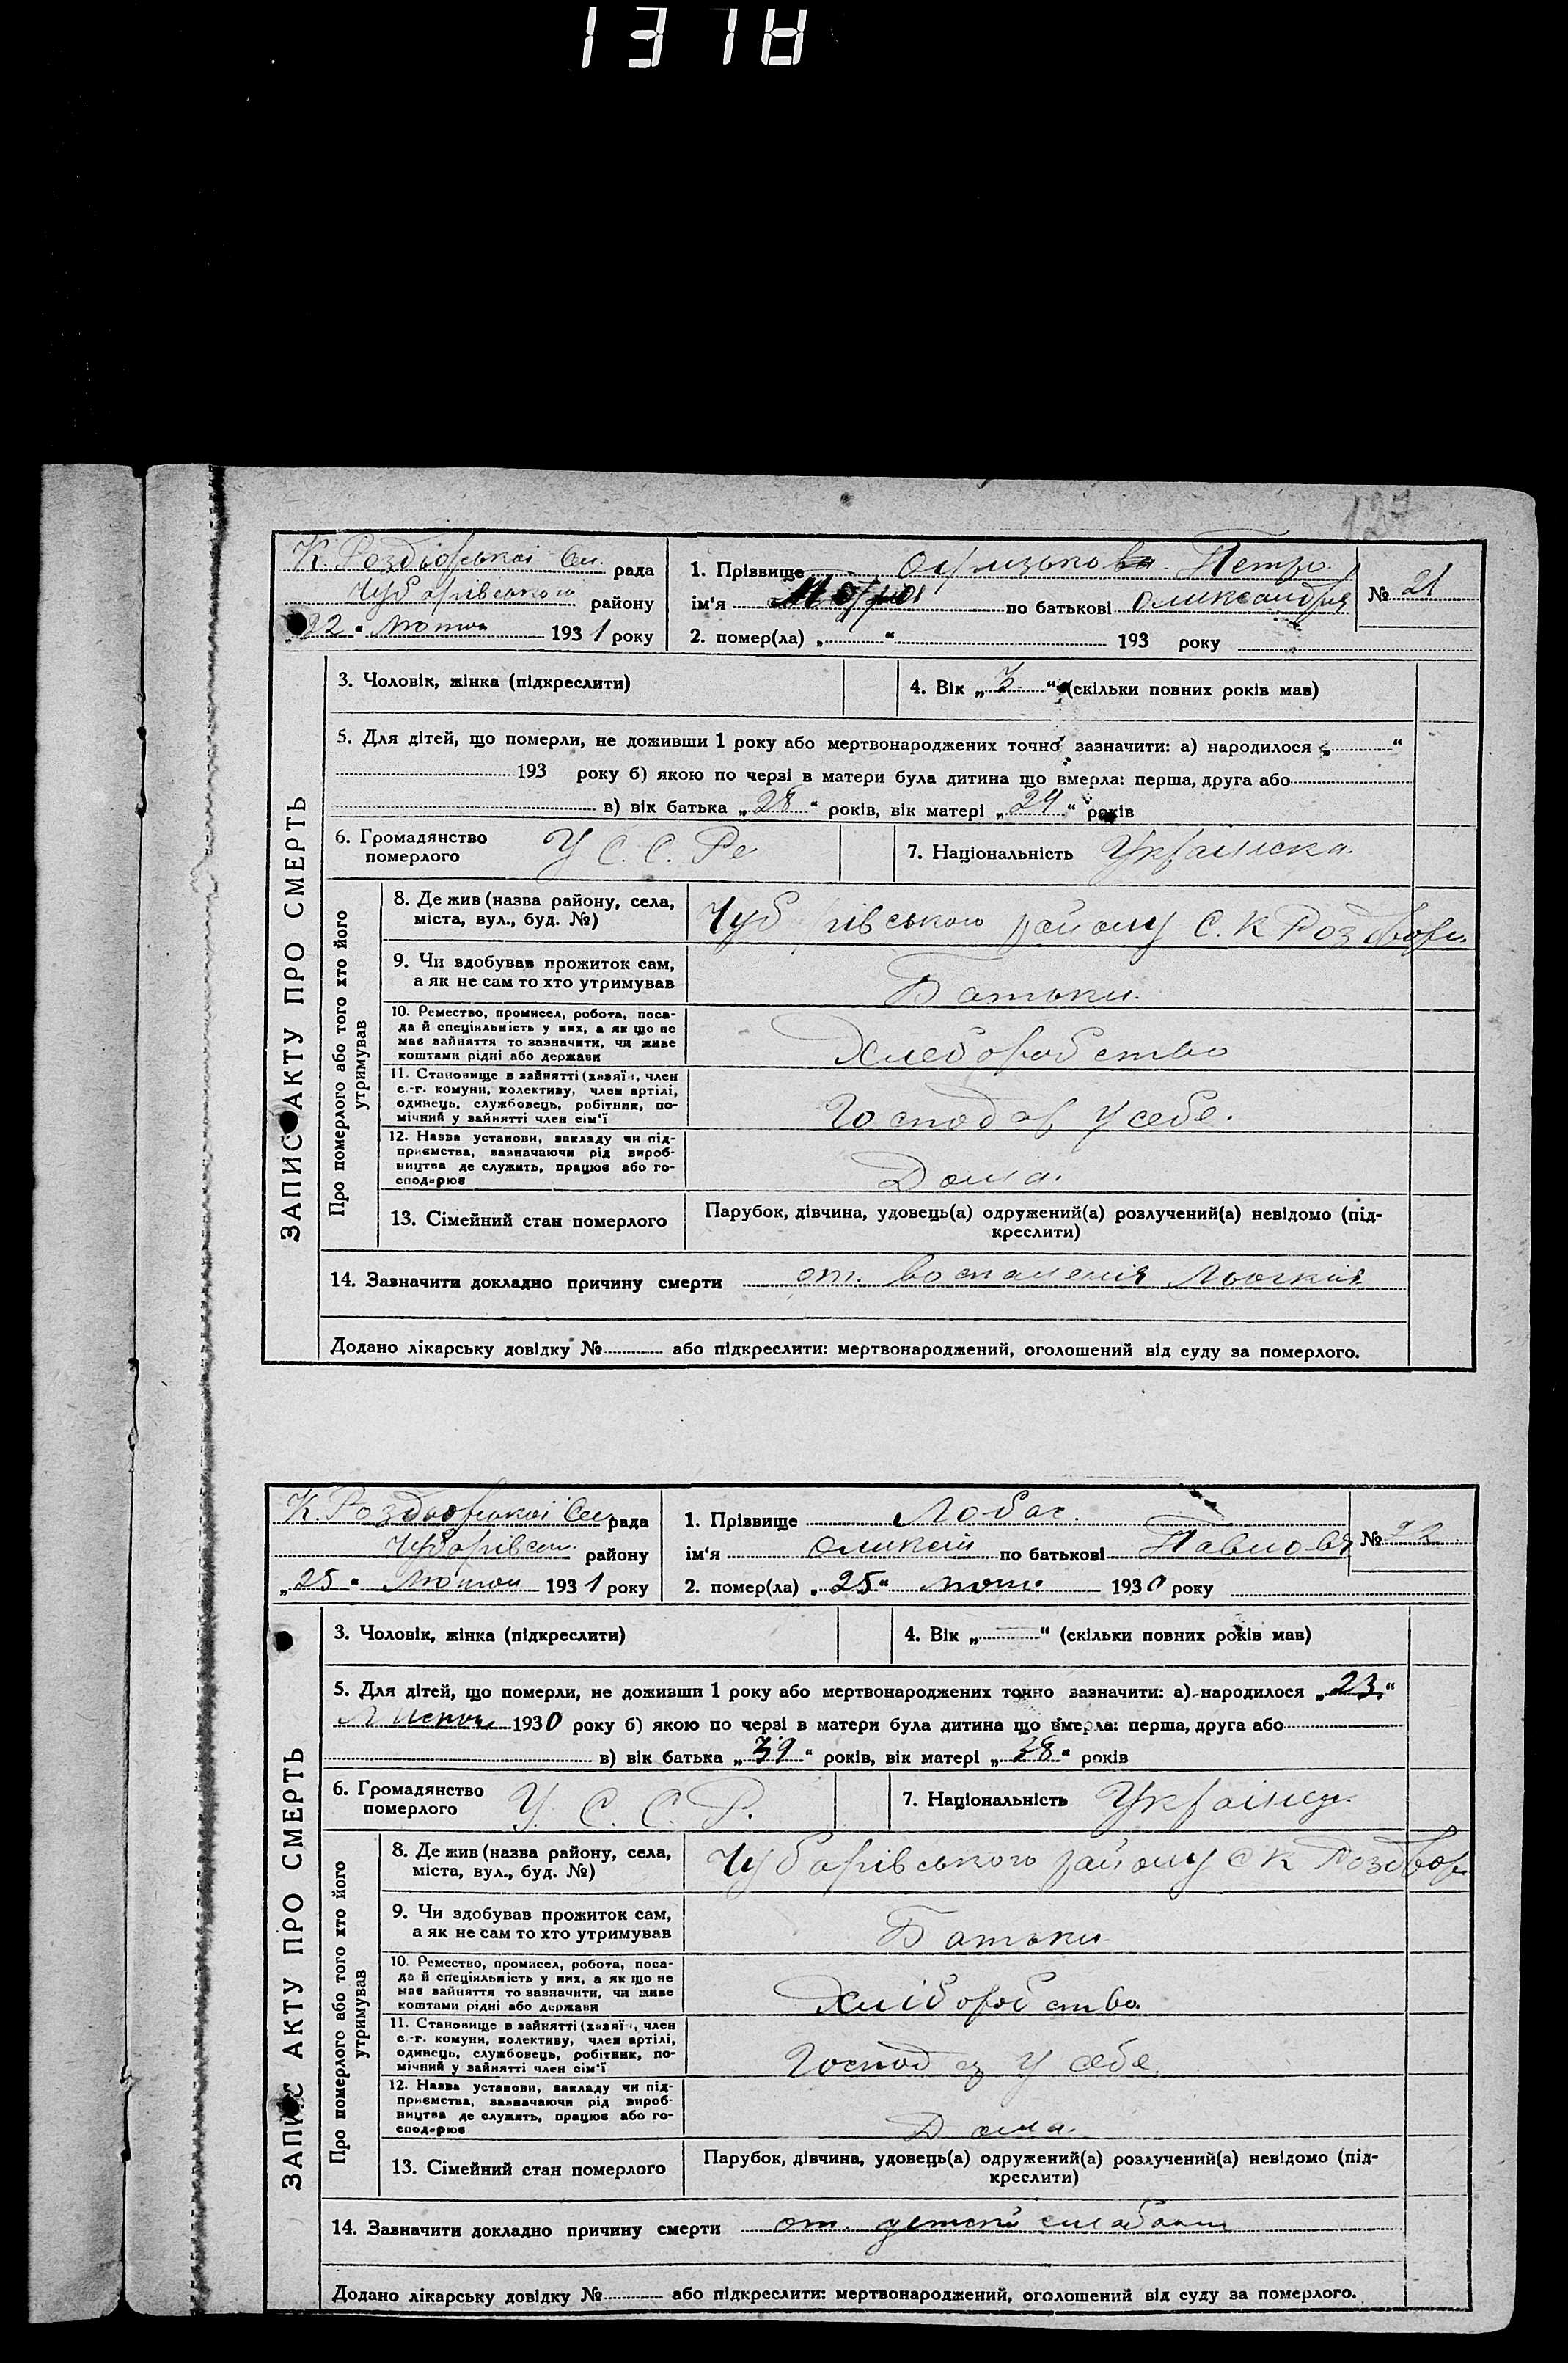 137
127
К. Роздорської Сел. рада
Чубарівського району
„22“ Лютого 1931 року
1. Прізвище Петро
ім‘я по батькові Олександров
№ 21
2. помер(ла) „ “ 193 року
ЗАПИС АКТУ ПРО СМЕРТЬ
3. Чоловік, жінка (підкреслити)
4. Вік „3“ (скільки повних років мав)
5. Для дітей, що померли, не доживши 1 року або мертвонароджених точно зазначити: а) народилося „ “
193 року б) якою по черзі в матери була дитина що вмерла: перша, друга або
в) вік батька „28“ років, вік матері „24“ років
6. Громадянство померлого У С. С. Ре
7. Національність Українска.
Про померлого або того хто його утримував
8. Де жив (назва району, села,
міста, вул., буд. №) Чуб рівського району С. К Роздвори.
9. Чи здобував прожиток сам,
а як не сам то хто утримував Батьки.
10. Ремество, промисел, робота, поса-
да й спеціяльність у них, а як що не
має зайняття то зазначити, чи живе
коштами рідні або держави Хлеборобство
11. Становище в зайнятті (хазяїн, член
с.-г. комуни, колективу, член артілі,
одинець, службовець, робітник, по-
мічний у зайнятті член сім‘ї Господар у себе.
12. Назва установи, закладу чи під-
приємства, зазначаючи рід вироб-
ництва де служить, працює або го-
сподарює Дома.
13. Сімейний стан померлого
Парубок, дівчина, удовець(а) одружений(а) розлучений(а) невідомо (під-
креслити)
14. Зазначити докладно причину смерти от. воспаленія Льогкія
Додано лікарську довідку № або підкреслити: мертвонароджений, оголошений від суду за померлого.
К. Роздорської Сел рада
Чубарівськ. району
„25“ Лютого 1931 року
1. Прізвище Лобас.
ім‘я Оликсій по батькові Павлов
№ 22
2. помер(ла) „25“ лют. 1930 року
ЗАПИС АКТУ ПРО СМЕРТЬ
3. Чоловік, жінка (підкреслити)
4. Вік „—“ (скільки повних років мав)
5. Для дітей, що померли, не доживши 1 року або мертвонароджених точно зазначити: а) народилося „23.“
1930 року б) якою по черзі в матери була дитина що вмерла: перша, друга або
в) вік батька „39“ років, вік матері „38“ років
6. Громадянство померлого У. С. С. Р.
7. Національність Українец.
Про померлого або того хто його утримував
8. Де жив (назва району, села,
міста, вул., буд. №) Чубарівського району С К Роздвор.
9. Чи здобував прожиток сам,
а як не сам то хто утримував Батьки
10. Ремество, промисел, робота, поса-
да й спеціяльність у них, а як що не
має зайняття то зазначити, чи живе
коштами рідні або держави Хліборобство.
11. Становище в зайнятті (хазяїн, член
с.-г. комуни, колективу, член артілі,
одинець, службовець, робітник, по-
мічний у зайнятті член сім‘ї у себе.
12. Назва установи, закладу чи під-
приємства, зазначаючи рід вироб-
ництва де служить, працює або го-
сподарює Дома.
13. Сімейний стан померлого
Парубок, дівчина, удовець(а) одружений(а) розлучений(а) невідомо (під-
креслити)
14. Зазначити докладно причину смерти от.
Додано лікарську довідку № або підкреслити: мертвонароджений, оголошений від суду за померлого.